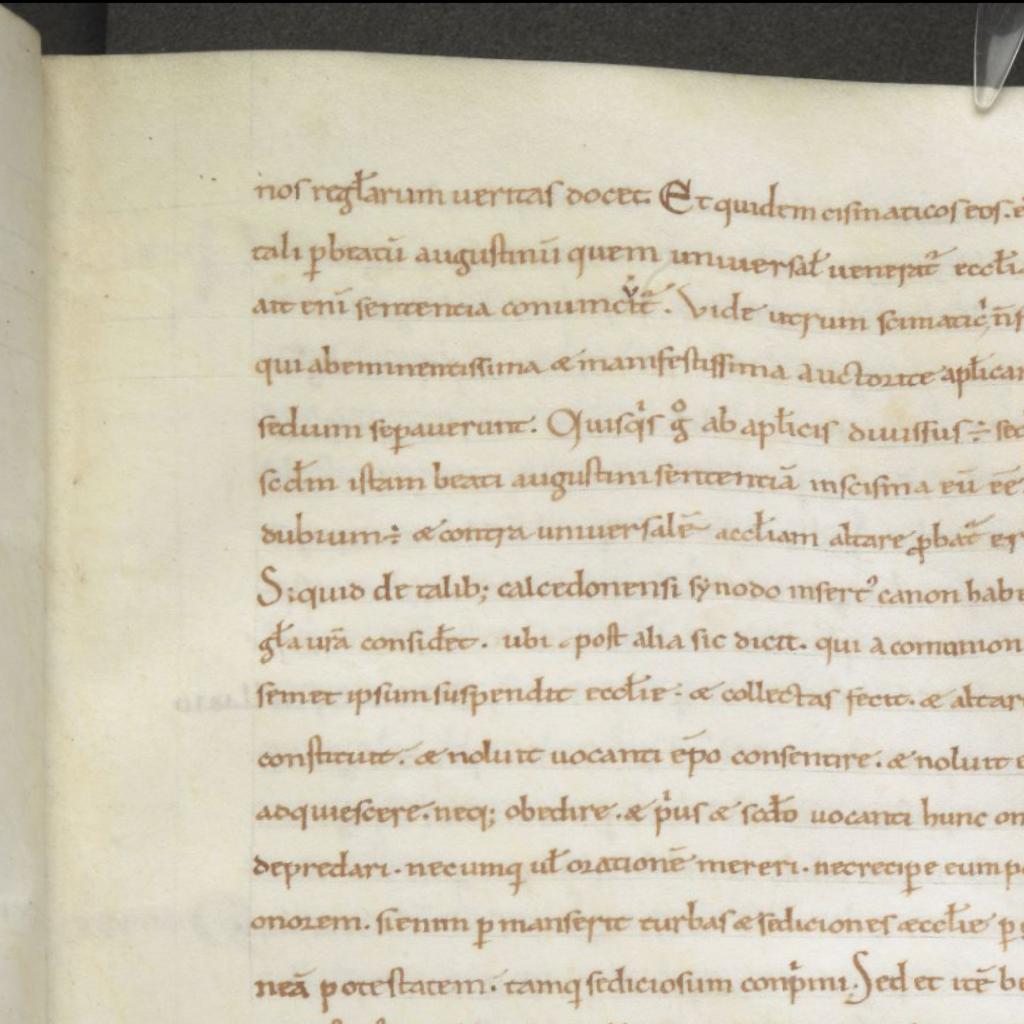 nos regłarum ueritas docet. Et quidem cismaticos eos. e
tali p̱beatū augustinū quem uniuersał ueneratᷣ eccłi
ait enī sentencia conuincit̄. Vide utrum scimaticˡ n̄s
qui abeminentissima & manifestissima auctorite apłicar
sedium sep̱auerunt. Quisqˡs gº ab apłicis diuissus ÷ sed
scdm̄ istam beati augustini sententiā inscisma eū eē
dubium÷ & contra uniuersalē aeccłiam altare ꝓbat̄ er
Siquid de talib; calcedonensi synodo insertꝰ canon habe
gła ur̄a consideret̄. ubi post alia sic dicit. qui a comunion
semet ipsum suspendit eccłie. & collectas fecit. & altar
constituit. & noluit uocanti ēpo consentire. & noluit e
adquiescere. neq; obedire. & pˡus & scdō uocanti hunc om
depredari. necumq uł orationē mereri. necrecipe eump
onorem. sienim p̱manserit turbas & sediciones æccłie p̱
neā potestatem. tamq sediciosum conpˡmi. Sed et itē be